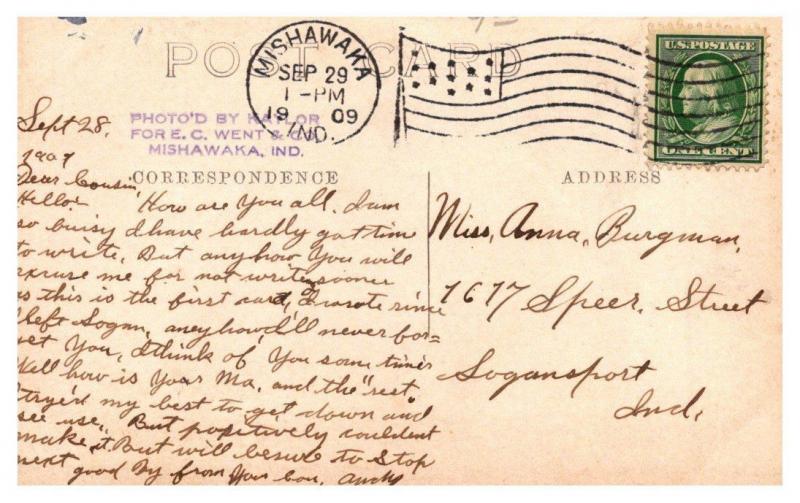 POST CARD
MISHAWAKA
SEP 29
1-PM
1909
IND.
U.S. POSTAGE
ONE CENT
PHOTO'D BY KAYLOR
FOR E. C. WENT & CO.
MISHAWAKA, IND.
CORRESPONDENCE
ADDRESS
Sept 28,
1909
Dear Cousin
Hello! How are You all. I am
so buisy I have hardly got tim
to write. But anyhow You will
excuse me for not writen sooner
as this is the first card, I wrote since
I left Logan, aneyhow, I'll never for=
get You, I think of You some times
Well how is Your Ma. and the "rest.
I trye'd my best to get down and
see use. But positively couldent
make it. But will be sure to Stop
next good By from Your Cou,
Miss, Anna, Burgman,
1617 Speer, Street
Logansport
Ind,